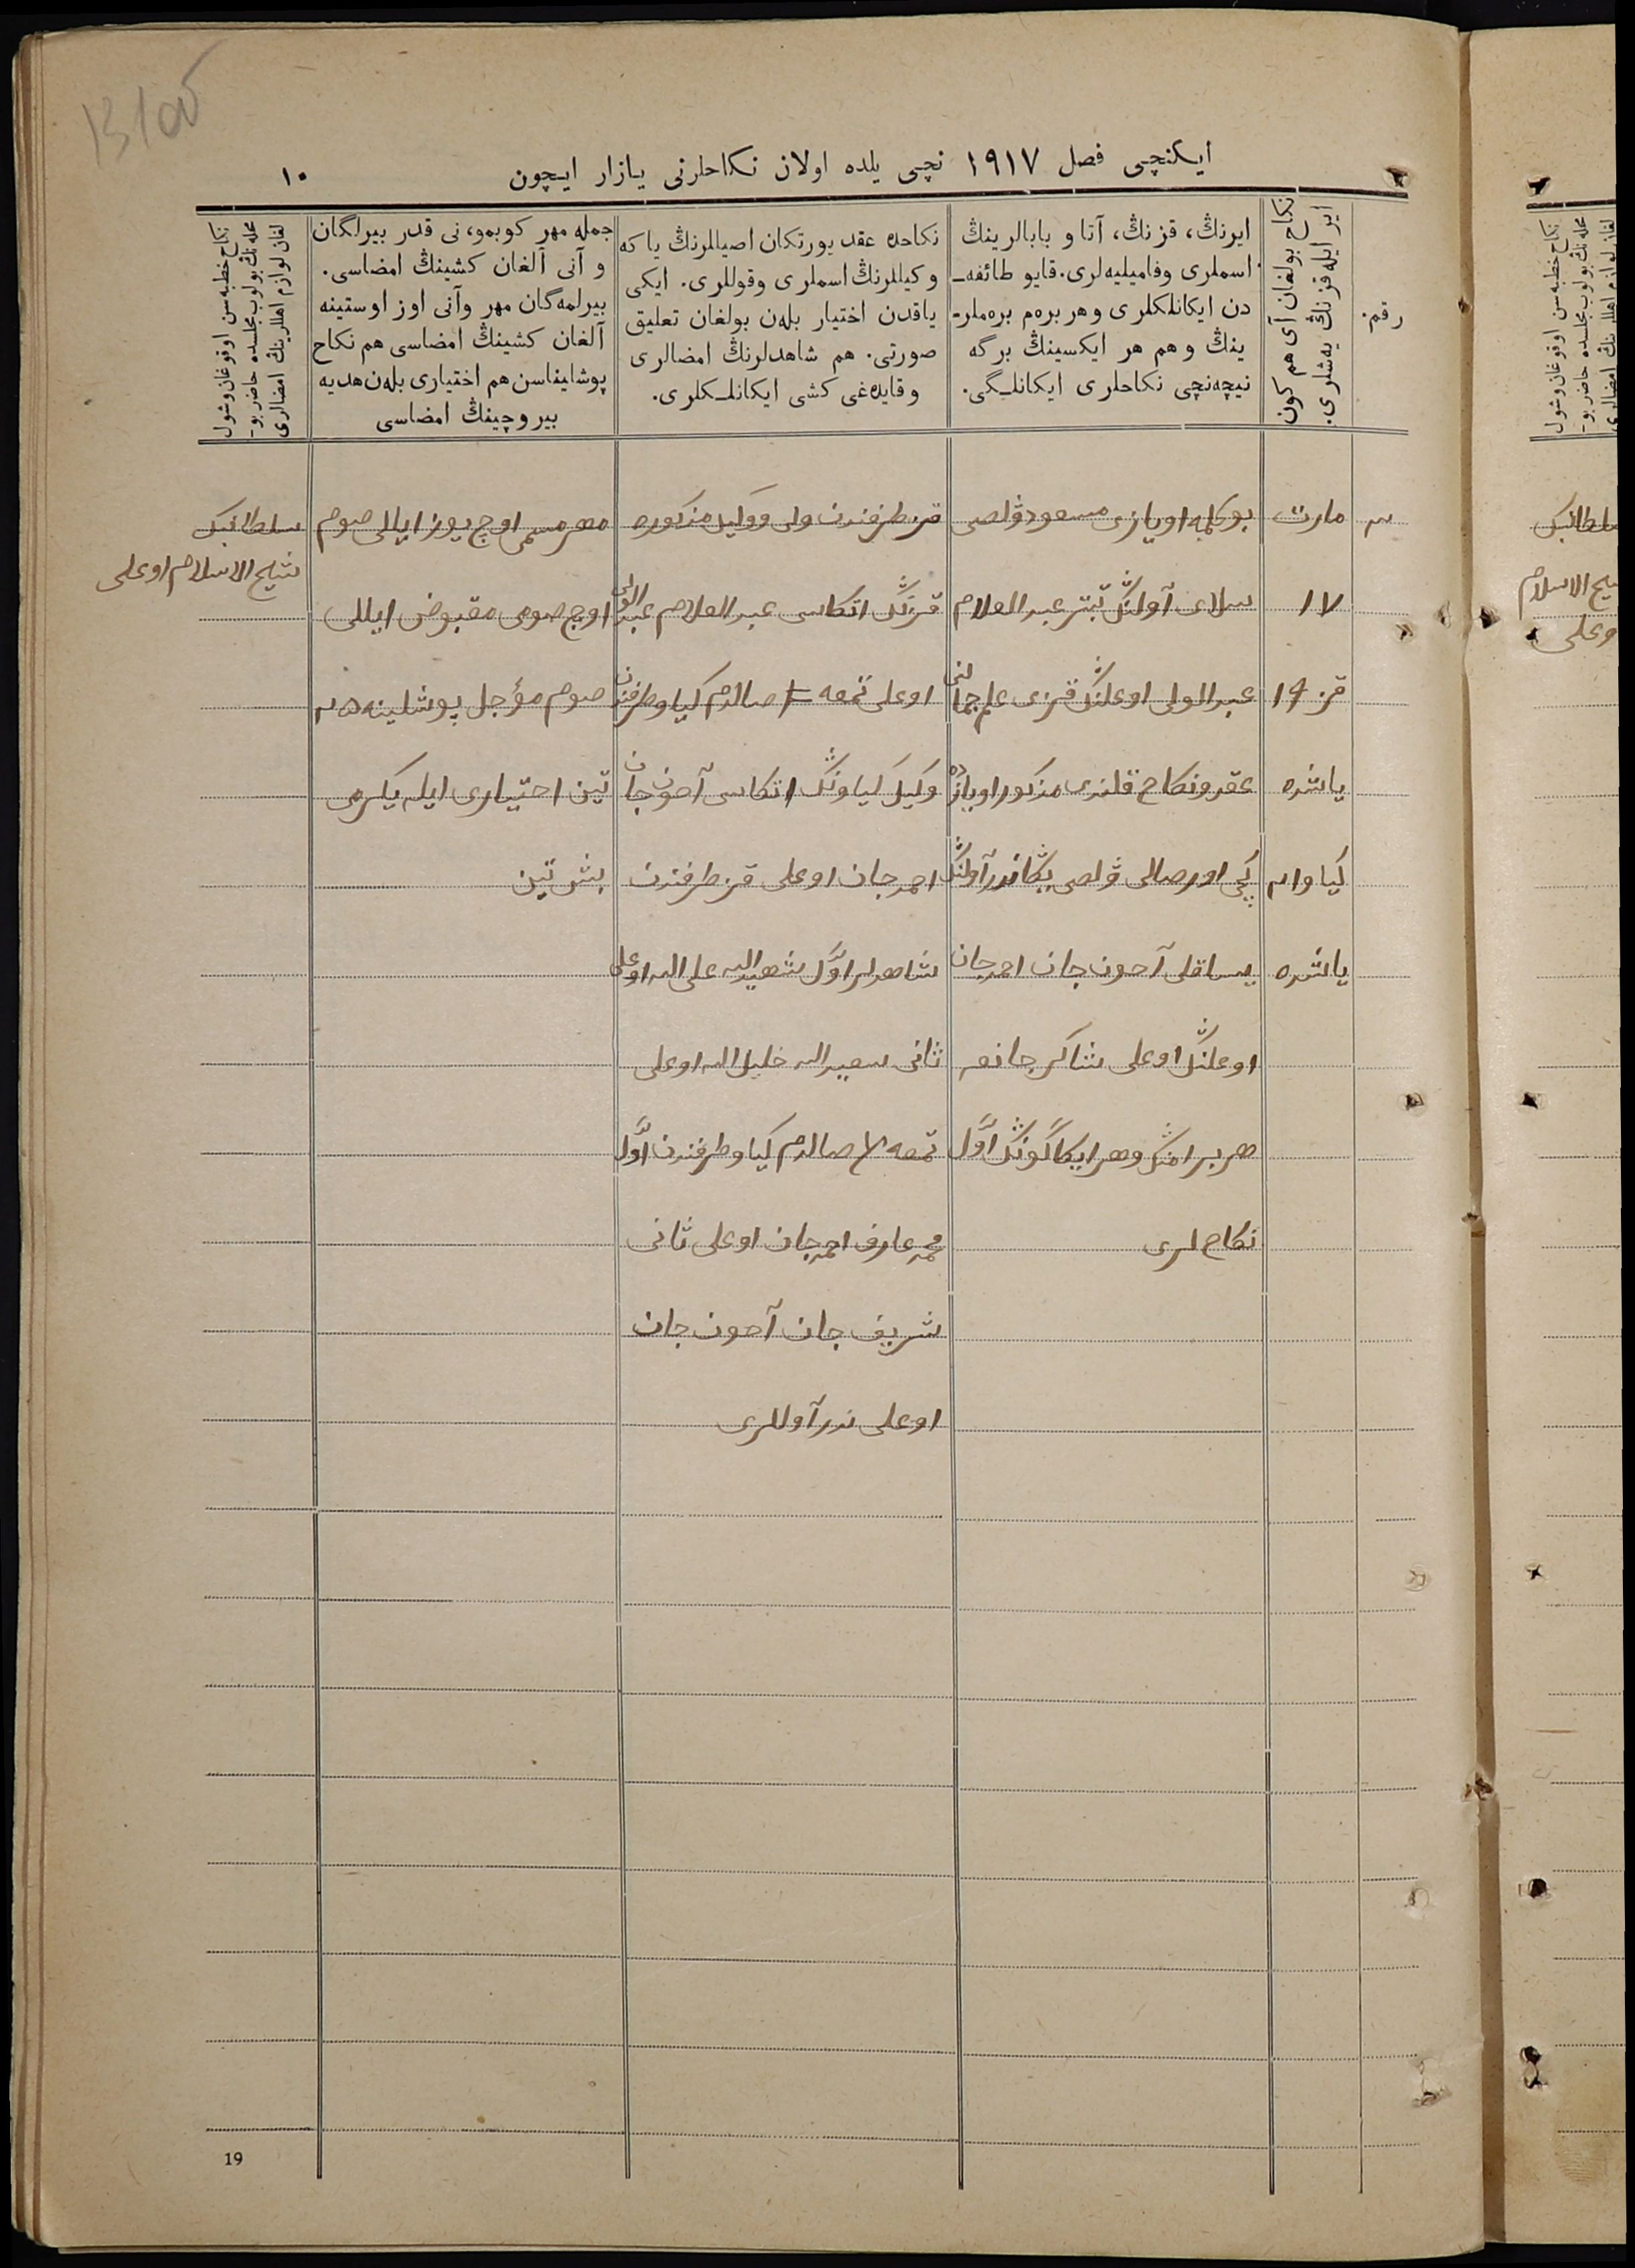 ایکنچی فصل ۱۹۱۷ نچی یلده اولان نکاحلرنی یازار ایچون
۱۰
رقم.
نکاح بولغان آی هم کون
ایر ایله قزنڭ یه‌شلری.
ایرنڭ، قزنڭ، آتا و بابالرینڭ
اسملری وفامیلیه‌لری. قایو طائفه‌ـ
دن ایکانلکلری و هر بره‌م بره‌ملرـ
ینڭ و هم هر ایکسینڭ برگه
نیچه‌نچی نکاحلری ایکانلـگی.
نکاحده عقد یورتکان اصیللرنڭ یا که
وکیللرنڭ اسملری وقوللری. ایکی
یاقدن اختیار بله‌ن بولغان تعلیق
صورتی. هم شاهدلرنڭ امضالری
وقایده‌غی کشی ایکانلـکلری.
جمله مهر کوبمو، نی قدر بیرلگان
و آنی آلغان کشینڭ امضاسی.
بیرلمه‌گان مهر وآنی اوز اوستینه
آلغان کشینڭ امضاسی هم نکاح
پوشایناسن هم اختیاری بله‌ن هدیه
بیروچینڭ امضاسی
نکاح خطبه‌سن اوقوغان وشول
محله‌نڭ بولوب مجلسده حاضر بوـ
لغان لوازم اهللرینڭ امضالری
مارت
۱۷
قز ۱۹
یاشده
کیاو
یاشده
بوکلمه اویازی مسعود ڤلصی
سلای آولنڭ عبدالعلام
عبدالولی اوغلنڭ قزی
عقد ونکاح قلندی مذکور اویازده
ڤلصی آولنڭ
آخون جان احمدجان
اوغلنڭ اوغلی شاکرجانغه
هر برامنڭ وهر ایکاگونڭ اوّل
نکاح لری
قز طرفندن ولی و وکیل مذکوره
قزنڭ اتکاسی عبدالعلام عبدالولی
اوغلی تمغه صالدم کیاو طرفندن
وکیل کیاونڭ اتکاسی آخون جان
احمدجان اوغلی قز طرفندن
شاهدلر اوّل شهیدالله علی الله اوغلی
ثانی سعیدالله خلیل الله اوغلی
تمغه صالدم کیاو طرفندن اوّل
محمد عارف احمدجان اوغلی ثانی
شریف جان آخون جان
اوغلی آوللری
مهر مسمی اوچ یوز ایللی صوم
اوچ صومی مقبوض ایللی
صوم مؤجل پوشلینه
تین اختیاری ایله یکرمی
بش تین
سلطانبک
شیخ الاسلام اوغلی
19
سلطانبک
شیخ الاسلام
اوغلی